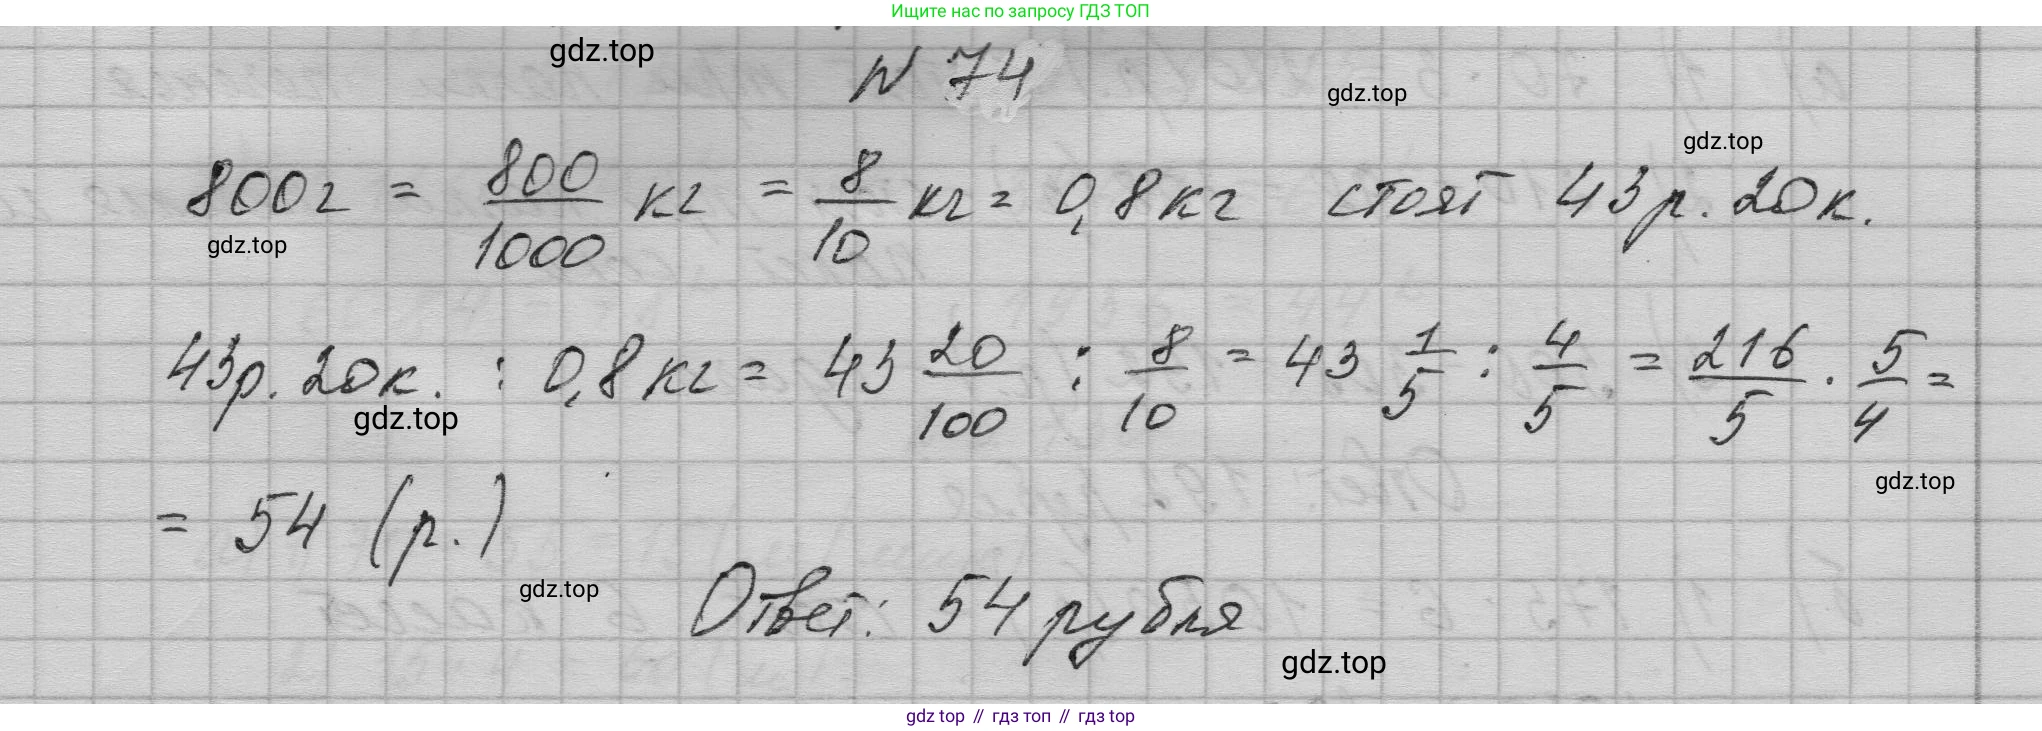 Ищите нас по запросу ГДЗ ТОП
gdz.top
N 74
gdz.top
gdz.top
800г = 800/1000 кг = 8/10 кг = 0,8 кг стоят 43 р. 20 к.
gdz.top
43 р. 20 к. : 0,8 кг = 43 20/100 : 8/10 = 43 1/5 : 4/5 = 216/5 · 5/4 =
gdz.top
gdz.top
= 54 (р.)
gdz.top
Ответ: 54 рубля
gdz.top
gdz top // гдз топ // гдз top